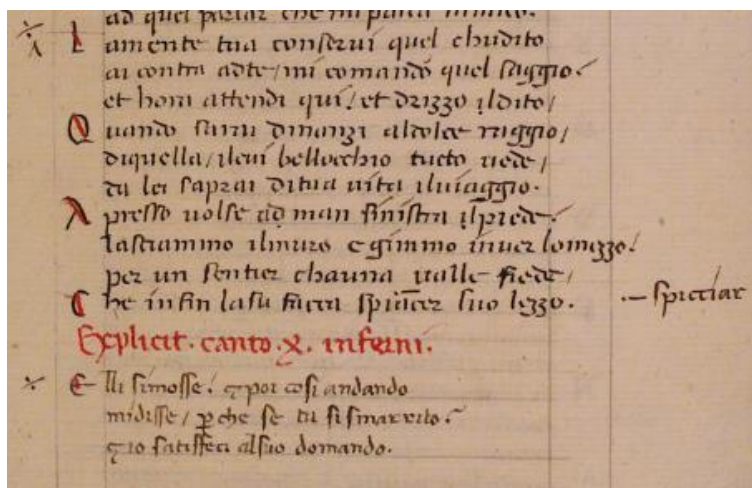 ad quel parlar che mi parea nimico.
La mente tua conservi quel chudito
ai contra adte / mi comandò quel saggio.
et hora attendi qui. et drizzo ildito /
Quando sarai dinanzi aldolce raggio /
diquella / ilcui bellocchio tucto uede /
da lei saprai ditua uita iluiaggio.
Apresso uolse ad man sinistra il piede.
lasciammo ilmuro e gimmo inuer lomezzo.
per un sentier chauna ualle fiede /
Che infin lasu facea spiacer suo lezzo. .– spicciar
Explicit. canto. x. inferni.
Elli simosse. & poi cosi andando
midisse / perche se tu sismarrito.
& io satisfeci alsuo domando.